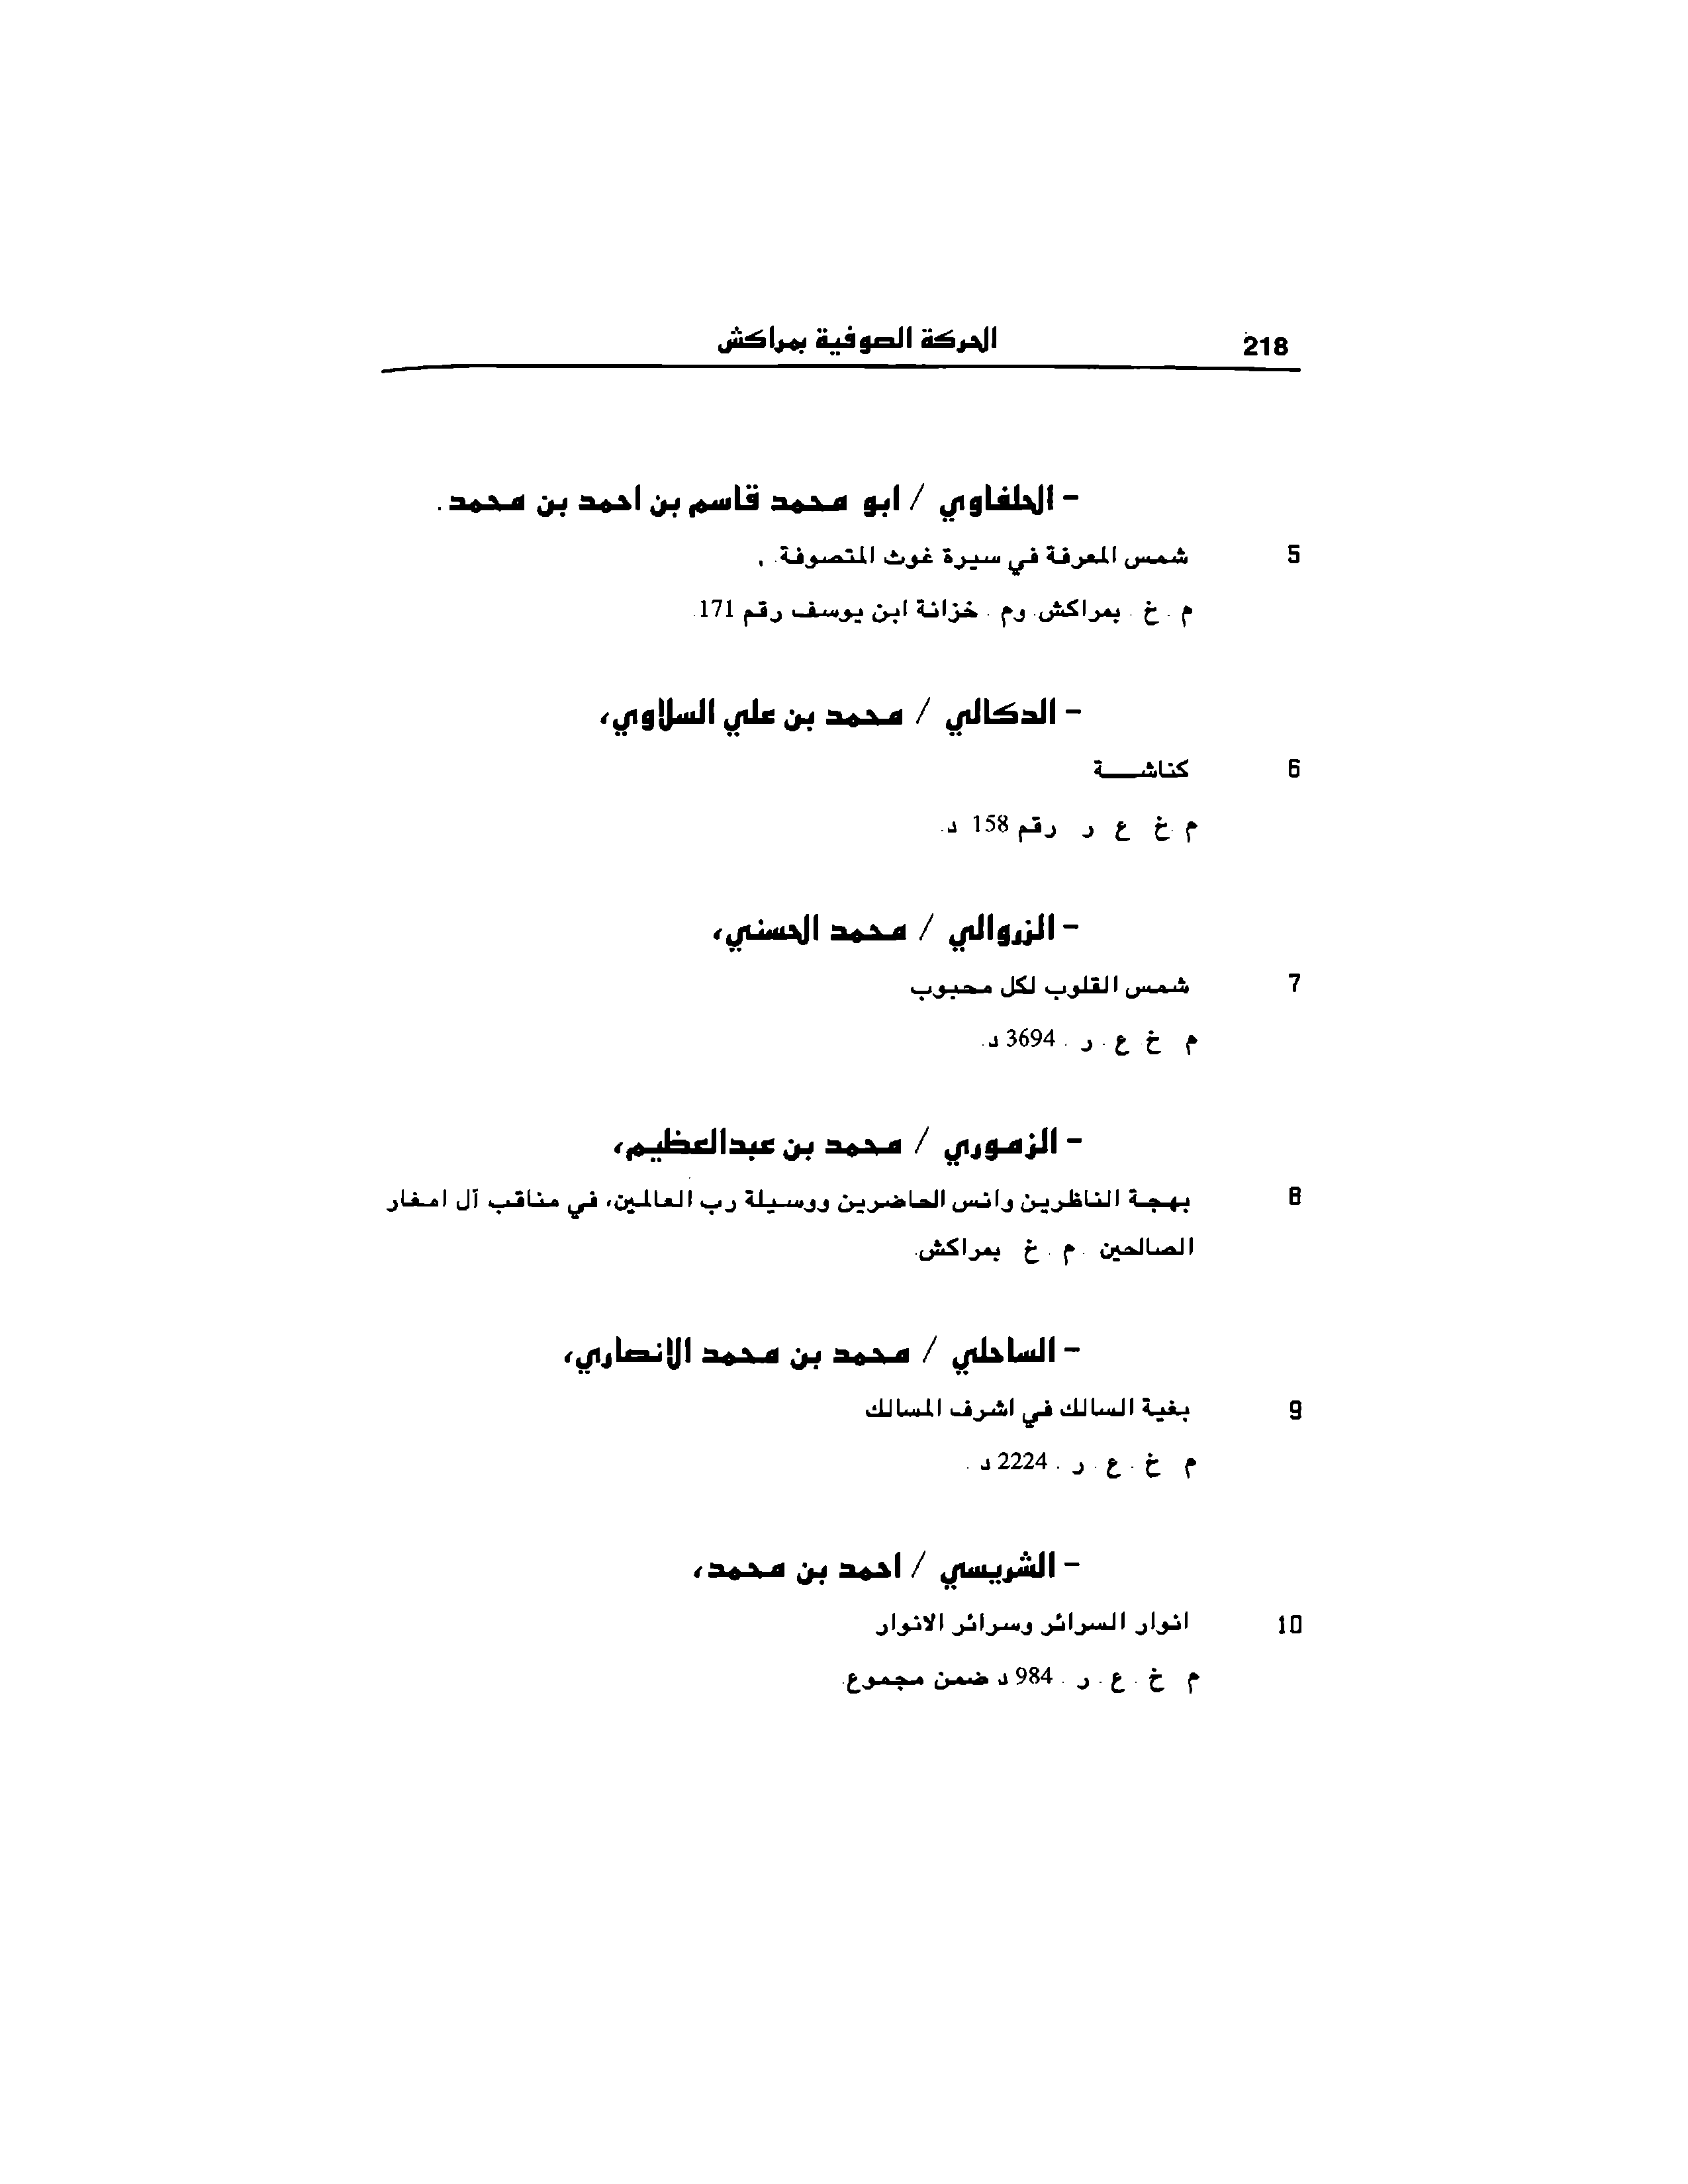 218 الحركة الصوفية بمراكش
- الحلفاوي / ابو محمد قاسم بن احمد بن محمد.
5 شمس المعرفة في سيرة غوث المتصوفة.
م. خ. بمراكش. وم. خزانة ابن يوسف رقم 171.
- الدكالي / محمد بن علي السلاوي،
6 كناشـــة
م.خ ع ر رقم 158 د.
- الزروالي / محمد الحسني،
7 شمس القلوب لكل محبوب
م خ ع. ر. 3694 د.
- الزموري / محمد بن عبدالعظيم،
8 بهجة الناظرين وانس الحاضرين ووسيلة رب العالمين، في مناقب آل امغار
الصالحين. م. خ بمراكش.
- الساحلي / محمد بن محمد الانصاري،
9 بغية السالك في اشرف المسالك
م خ. ع. ر. 2224 د.
- الشريسي / احمد بن محمد،
10 انوار السرائر وسرائر الانوار
م خ. ع. ر. 984 د ضمن مجموع.